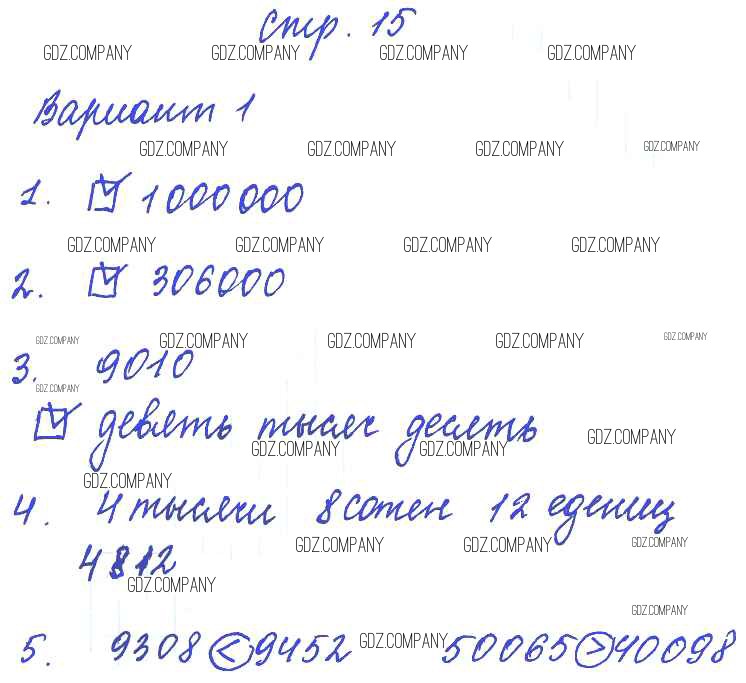 стр. 15
GDZ.COMPANY GDZ.COMPANY GDZ.COMPANY GDZ.COMPANY
Вариант 1
GDZ.COMPANY GDZ.COMPANY GDZ.COMPANY GDZ.COMPANY
1. ☑ 1000000
GDZ.COMPANY GDZ.COMPANY GDZ.COMPANY GDZ.COMPANY
2. ☑ 306000
GDZ.COMPANY GDZ.COMPANY GDZ.COMPANY GDZ.COMPANY GDZ.COMPANY
3. 9010
GDZ.COMPANY
☑ девять тысяч десять
GDZ.COMPANY GDZ.COMPANY GDZ.COMPANY
GDZ.COMPANY
4. 4 тысячи 8 сотен 12 едениц
GDZ.COMPANY GDZ.COMPANY GDZ.COMPANY
4812
GDZ.COMPANY
GDZ.COMPANY
5. 9308 < 9452 GDZ.COMPANY 50065 > 40098